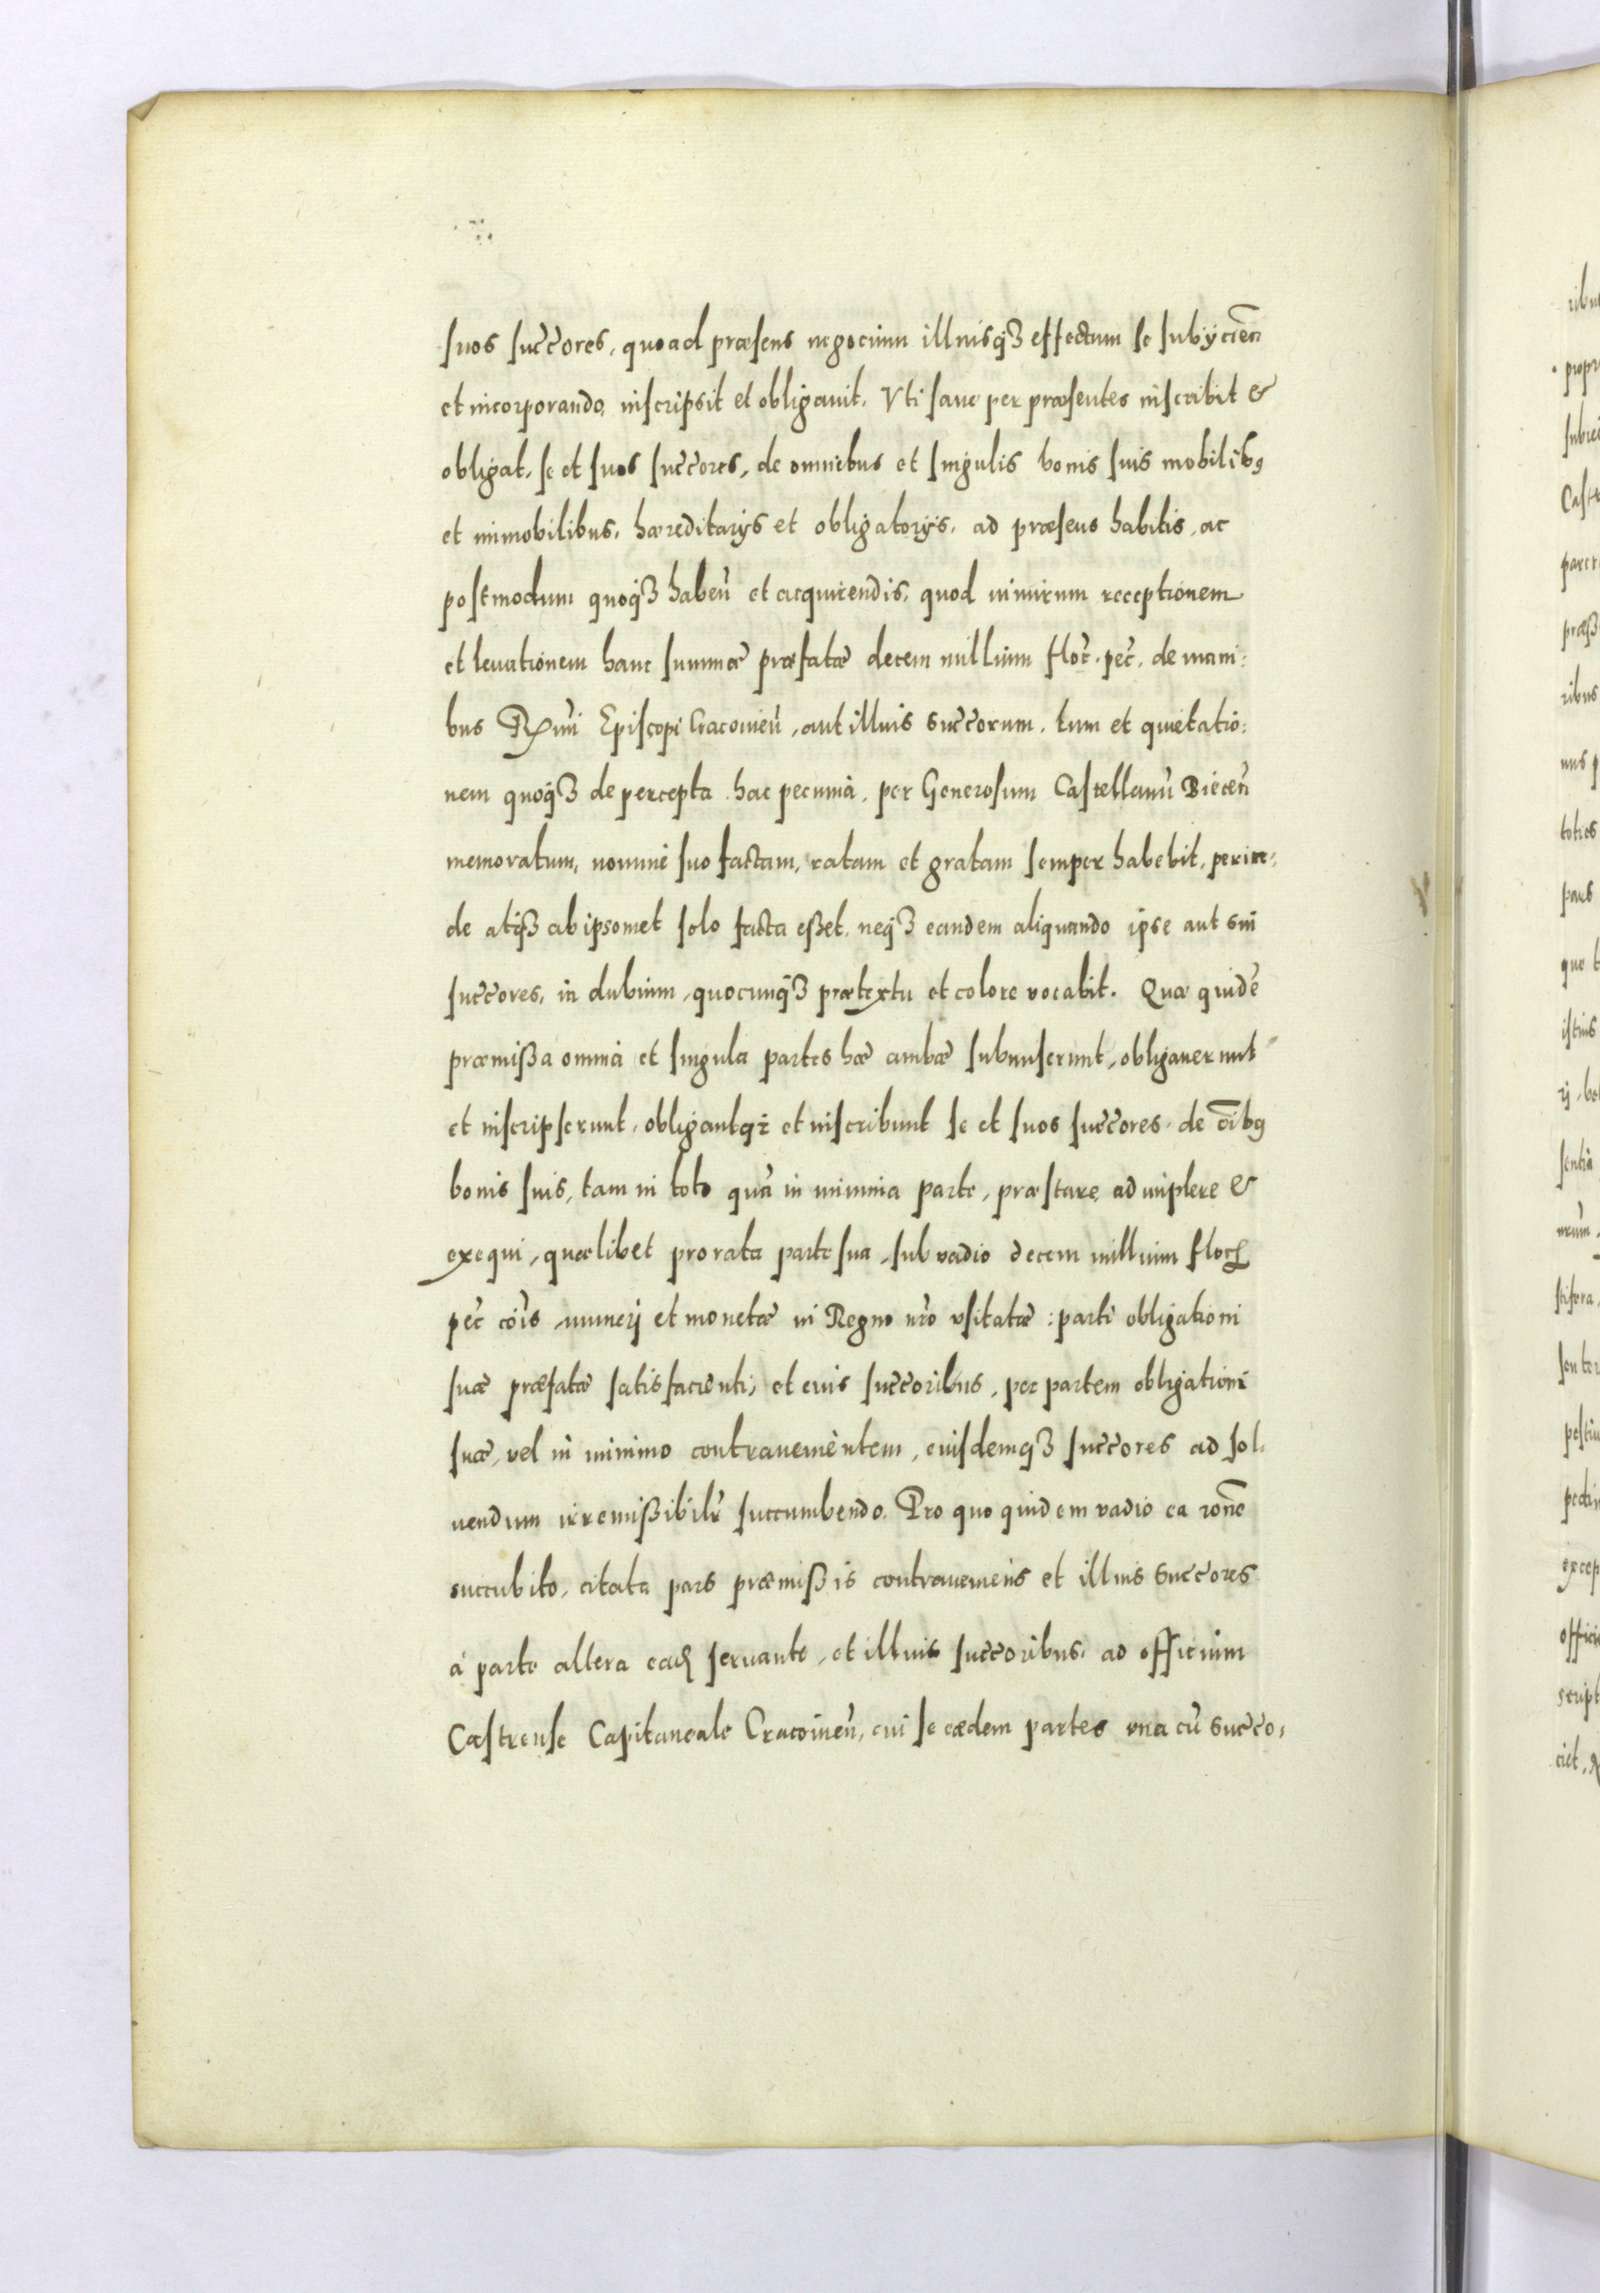 suos succ̃ores, quoad præsens negocium illiusq₃ effectum se subÿcien̄
et incorporando, inscripsit et obligauit. Vti sane per præsentes inscribit &
obligat, se et suos succ̃ores, de omnibus et singulis bonis suis mobilibꝰ
et immobilibus, hæreditarÿs et obligatorÿs, ad præsens habitis, ac
postmodum quoq₃ haben̄ et acquirendis, quod nimirum receptionem
et leuationem hanc summæ præfatæ decem millium floc̃. pec̃. de mani:
bus Rx̃mi Episcopi Cracouien̄, aut illius succ̃orum, tum et quietatio:
nem quoq₃ de percepta hac pecunia, per Generosum Castellanū Biecen̄
memoratum, nomine suo factam, ratam et gratam semper habebit, perin:
de atq₃ ab ipsomet solo facta eßet, neq₃ eandem aliquando ipse aut sui
succ̃ores, in dubium, quocunq₃ prætextu et colore vocabit. Quæ quidē
præmißa omnia et singula partes hæ ambæ submiserunt, obligauerunt
et inscripserunt, obligantq₃ et inscribunt se et suos succ̃ores, de oībꝰ
bonis suis, tam in toto quā in minima parte, præstare, adimplere &
exequi, quælibet pro rata parte sua, sub vadio decem millium floꝝ
pec̃ cōis, numeri et monetæ in Regno nr̄o vsitatæ: parti obligationi
suæ præfatæ satisfacienti, et eius succ̃oribus, per partem obligationi
suæ, vel in minimo contrauenientem, eiusdemq₃ succ̃ores ad sol:
uendum irremißibilr̃ succumbendo. Pro quo quidem vadio ea rōne
succubito, citata pars præmißis contraueniens et illius succ̃ores
á parte altera eaꝝ seruante, et illius succ̃oribus, ad officium
Castrense Capitaneale Cracouien̄, cui se eædem partes vna cū succ̃o: